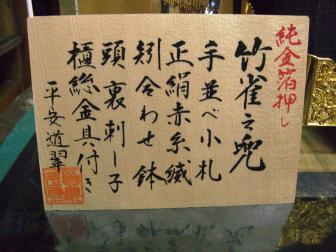 純金箔押し
竹雀之兜
手並べ小札
正絹赤糸縅
矧合わせ鉢
頭裏刺し子
櫃総金具付き
平安道翠